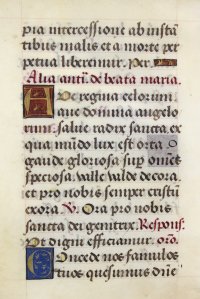 pia intercessione ab instā
tibus malis et a morte per
petua liberemur. Per.
Alia anti. de beata maria.
Ave regina celorum
ave domina angelo
rum. salve radix sancta ex
qua mūdo lux est orta
gaude gloriosa sup omēs
speciosa. valle valde decora.
et pro nobis semper cristū
exora V. Ora pro nobis
sancta dei genitrix. Respons.
Ut digni efficiamur. orō.
Concede nos famulos
tuos quesumus dñe